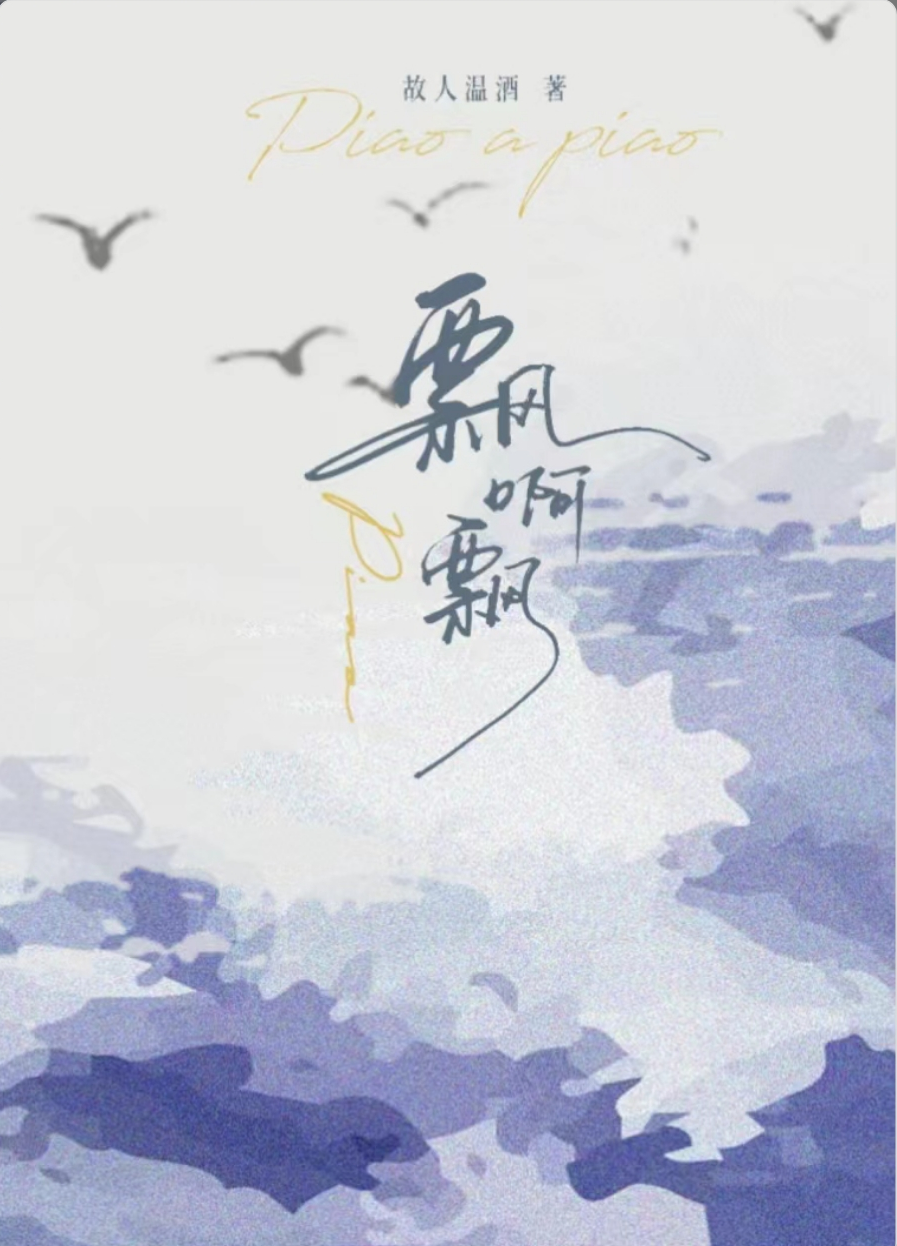 故人温酒 著
Piao a piao
飘
啊
飘
Piao